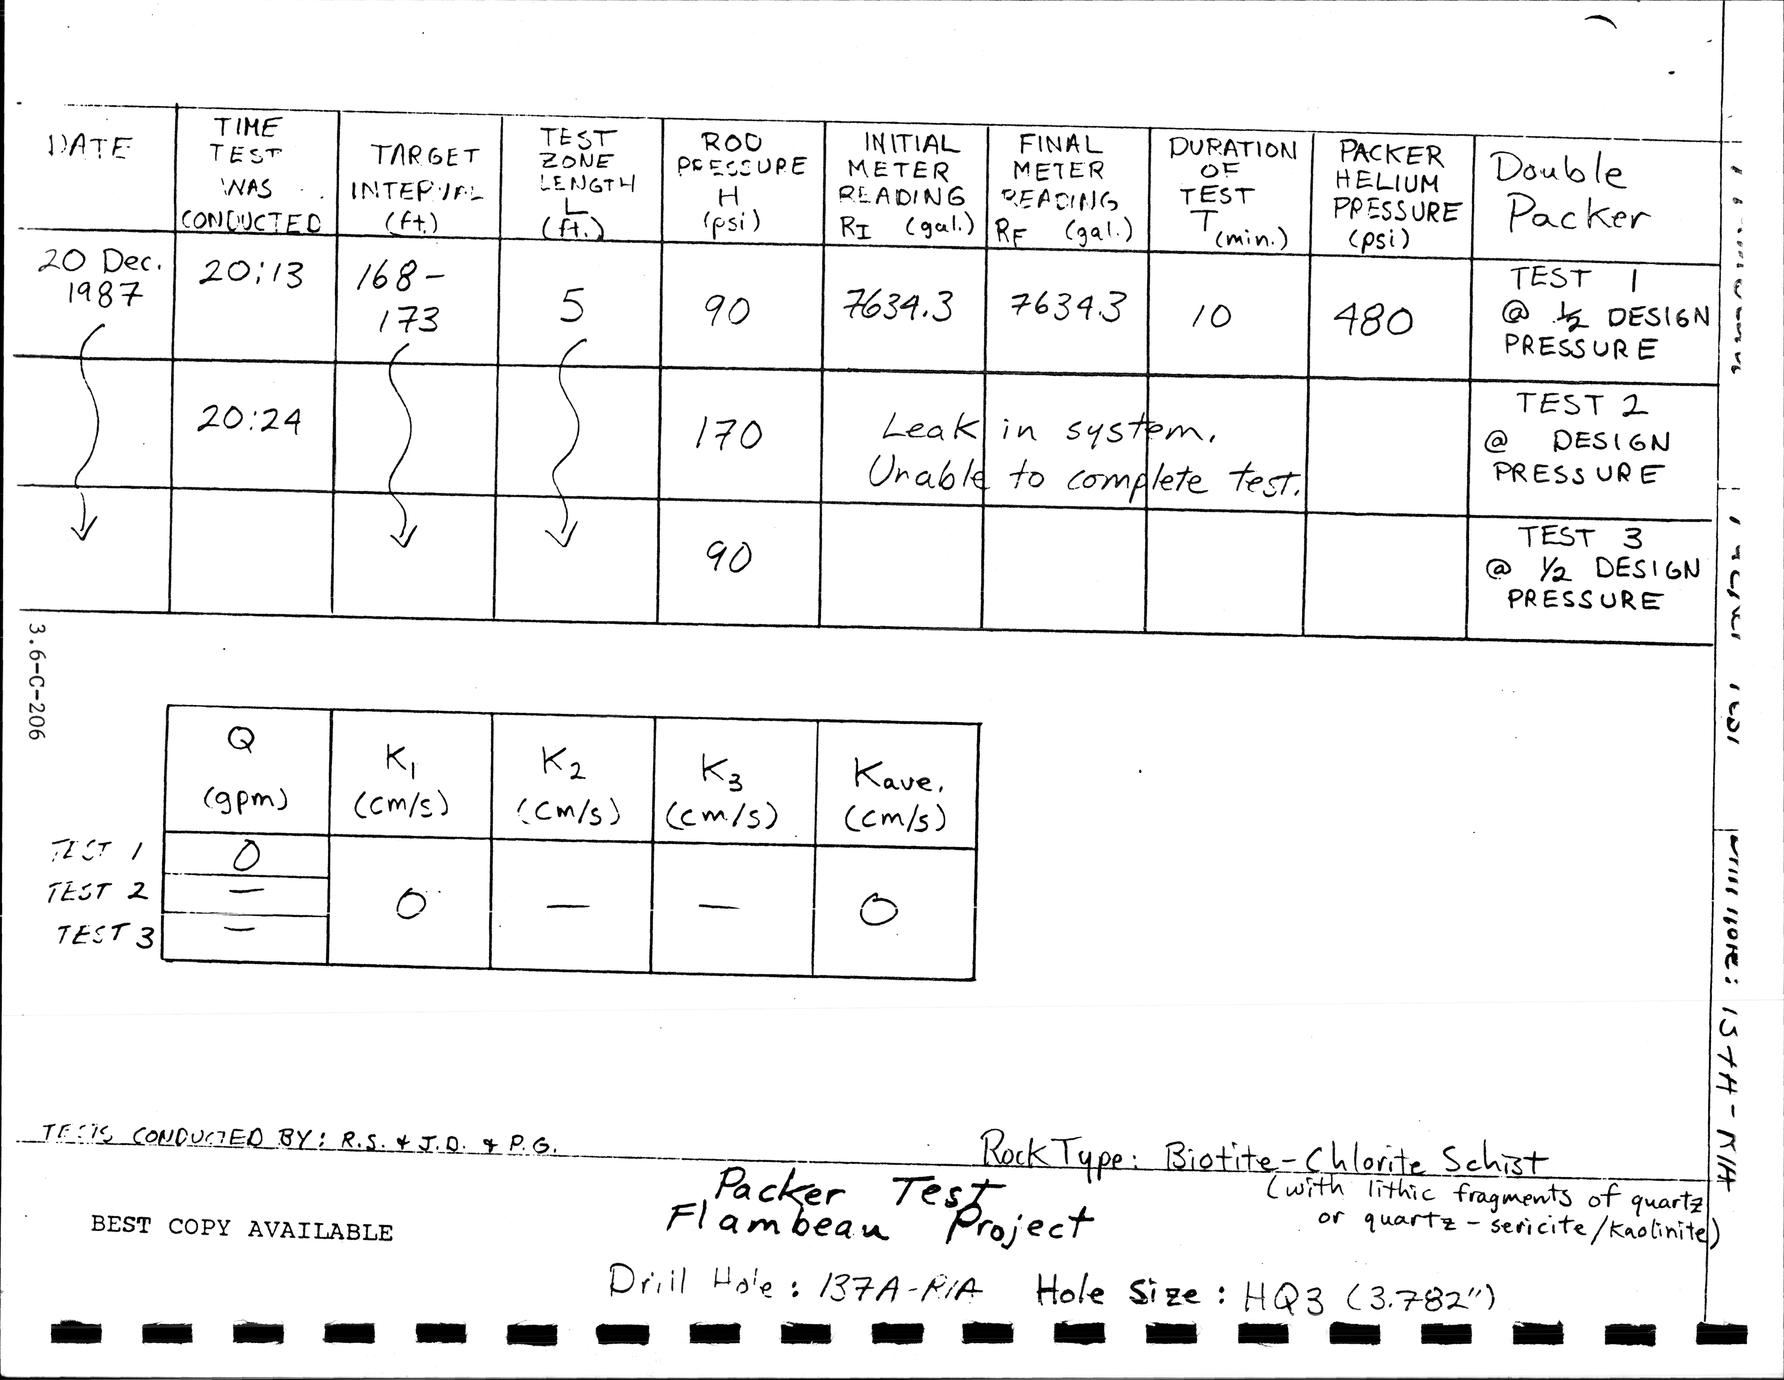 DATE
TIME
TEST
WAS
CONDUCTED
TARGET
INTERVAL
(ft.)
TEST
ZONE
LENGTH
L
(ft.)
ROD
PRESSURE
H
(psi)
INITIAL
METER
READING
RI (gal.)
FINAL
METER
READING
RF (gal.)
DURATION
OF
TEST
T (min.)
PACKER
HELIUM
PRESSURE
(psi)
Double
Packer
20 Dec.
1987
20:13
168-
173
5
90
7634.3
7634.3
10
480
TEST 1
@ 1/2 DESIGN
PRESSURE
20:24
170
Leak in system.
Unable to complete test.
TEST 2
@ DESIGN
PRESSURE
90
TEST 3
@ 1/2 DESIGN
PRESSURE
3.6-C-206
Q
(gpm)
K1
(cm/s)
K2
(cm/s)
K3
(cm/s)
Kave.
(cm/s)
TEST 1
0
TEST 2
—
TEST 3
—
0
—
—
0
TESTS CONDUCTED BY: R.S. & J.D. & P.G.
Rock Type: Biotite-Chlorite Schist
(with lithic fragments of quartz
or quartz-sericite/kaolinite)
Packer Test
Flambeau Project
BEST COPY AVAILABLE
Drill Hole: 137A-RIA Hole Size: HQ3 (3.782")